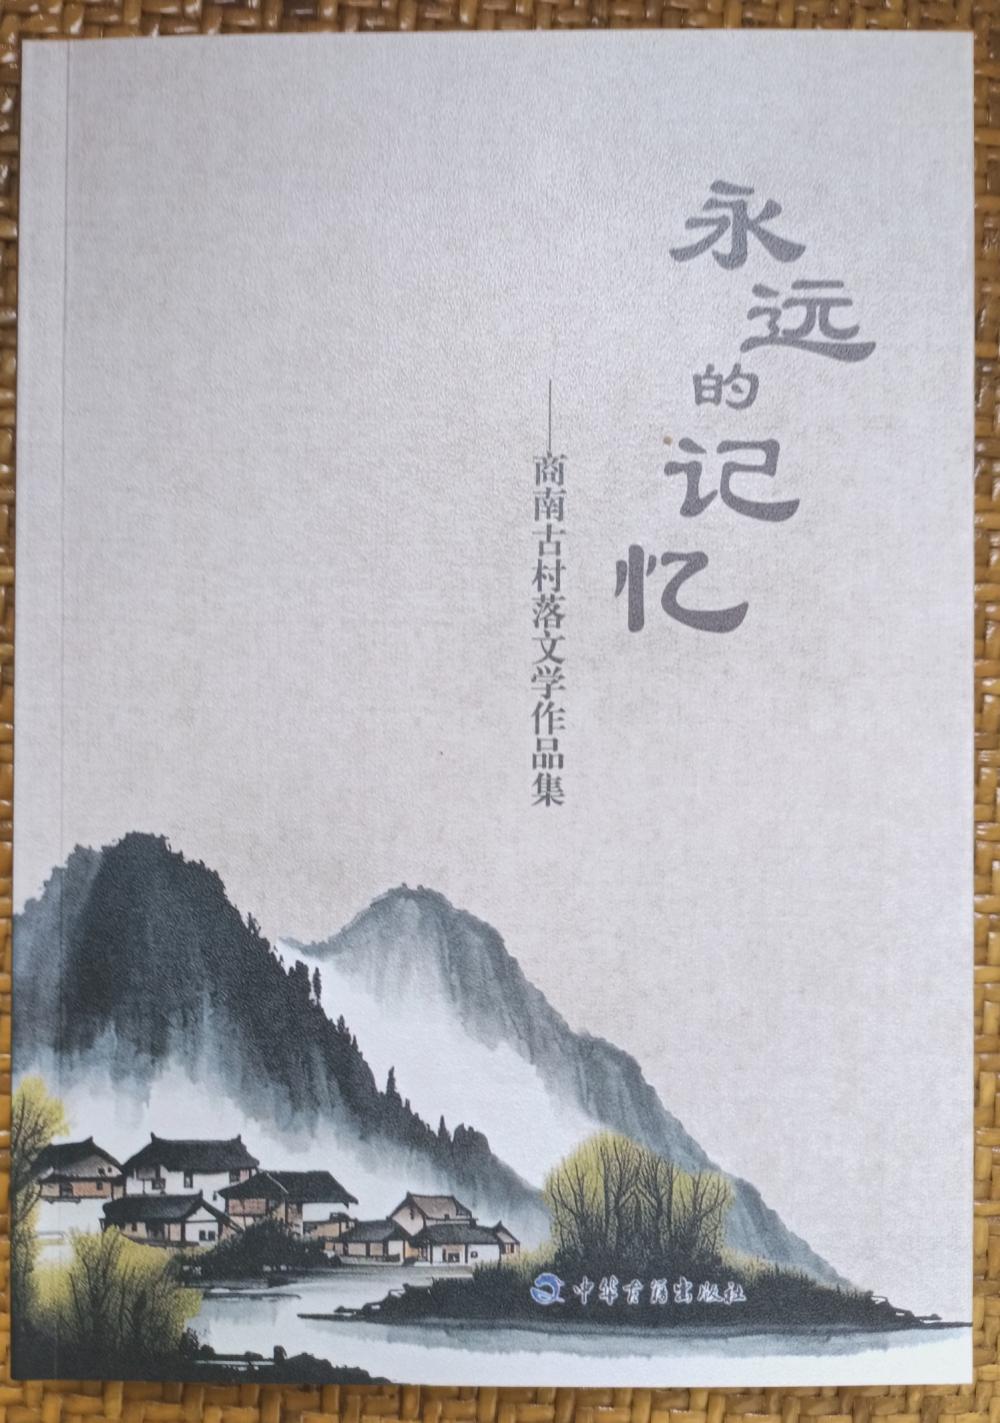 永远的记忆
——商南古村落文学作品集
中华古籍出版社